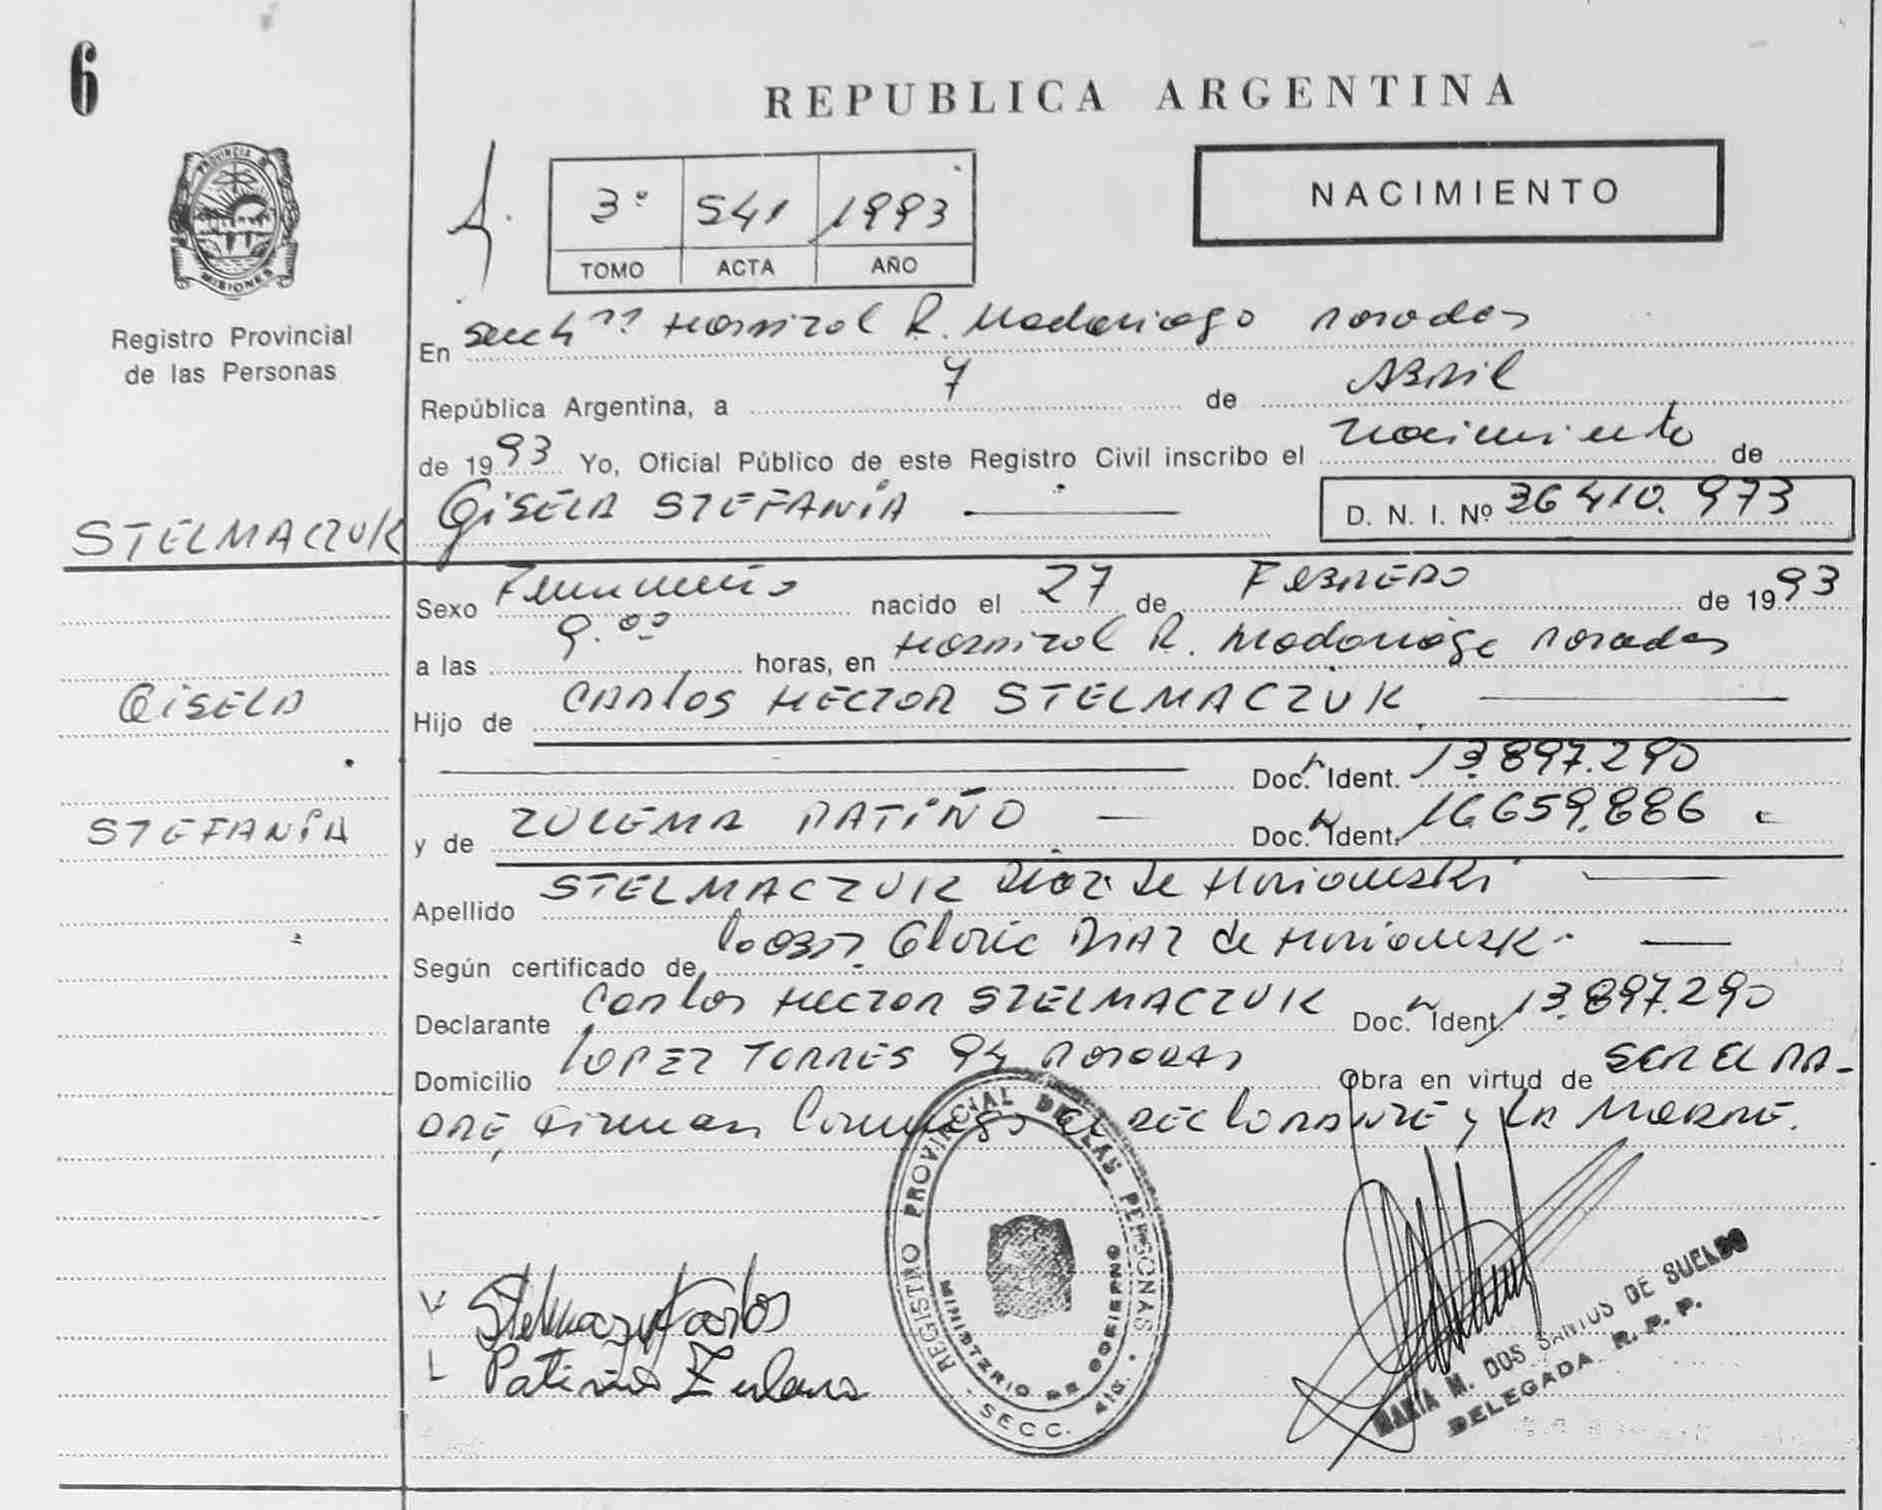 6
REPUBLICA ARGENTINA
PROVINCIA DE MISIONES
3º 541 1993
TOMO ACTA AÑO
NACIMIENTO
Registro Provincial
de las Personas
En Secc 4ª Hospital R. Madariaga Posadas
República Argentina, a 7 de Abril
de 1993 Yo, Oficial Público de este Registro Civil inscribo el Nacimiento de
STELMACZUK GISELA STEFANÍA D. N. I. Nº 36410.973
Sexo Femenino nacido el 27 de FEBRERO de 1993
a las 9.00 horas, en Hospital R. Madariaga Posadas
GISELA
Hijo de CARLOS HECTOR STELMACZUK
Doc. Ident. 13.897.290
STEFANÍA
y de ZULEMA PATIÑO Doc. Ident. 16.659.886
Apellido STELMACZUK Diaz de Muriowski
Según certificado de Gloria DIAZ de
Declarante Carlos Hector STELMACZUK Doc. Ident. 13.897.290
Domicilio LOPEZ TORRES 94 POSADAS Obra en virtud de SER EL PA-
DRE, Firman Conmigo el DECLARANTE y LA MADRE.
REGISTRO PROVINCIAL DE LAS PERSONAS
MINISTERIO DE GOBIERNO
SECC. 4ta.
Stelmaczuk Carlos
Patiño Zulema
MARIA M. DOS SANTOS DE SUELDO
DELEGADA R. P. P.